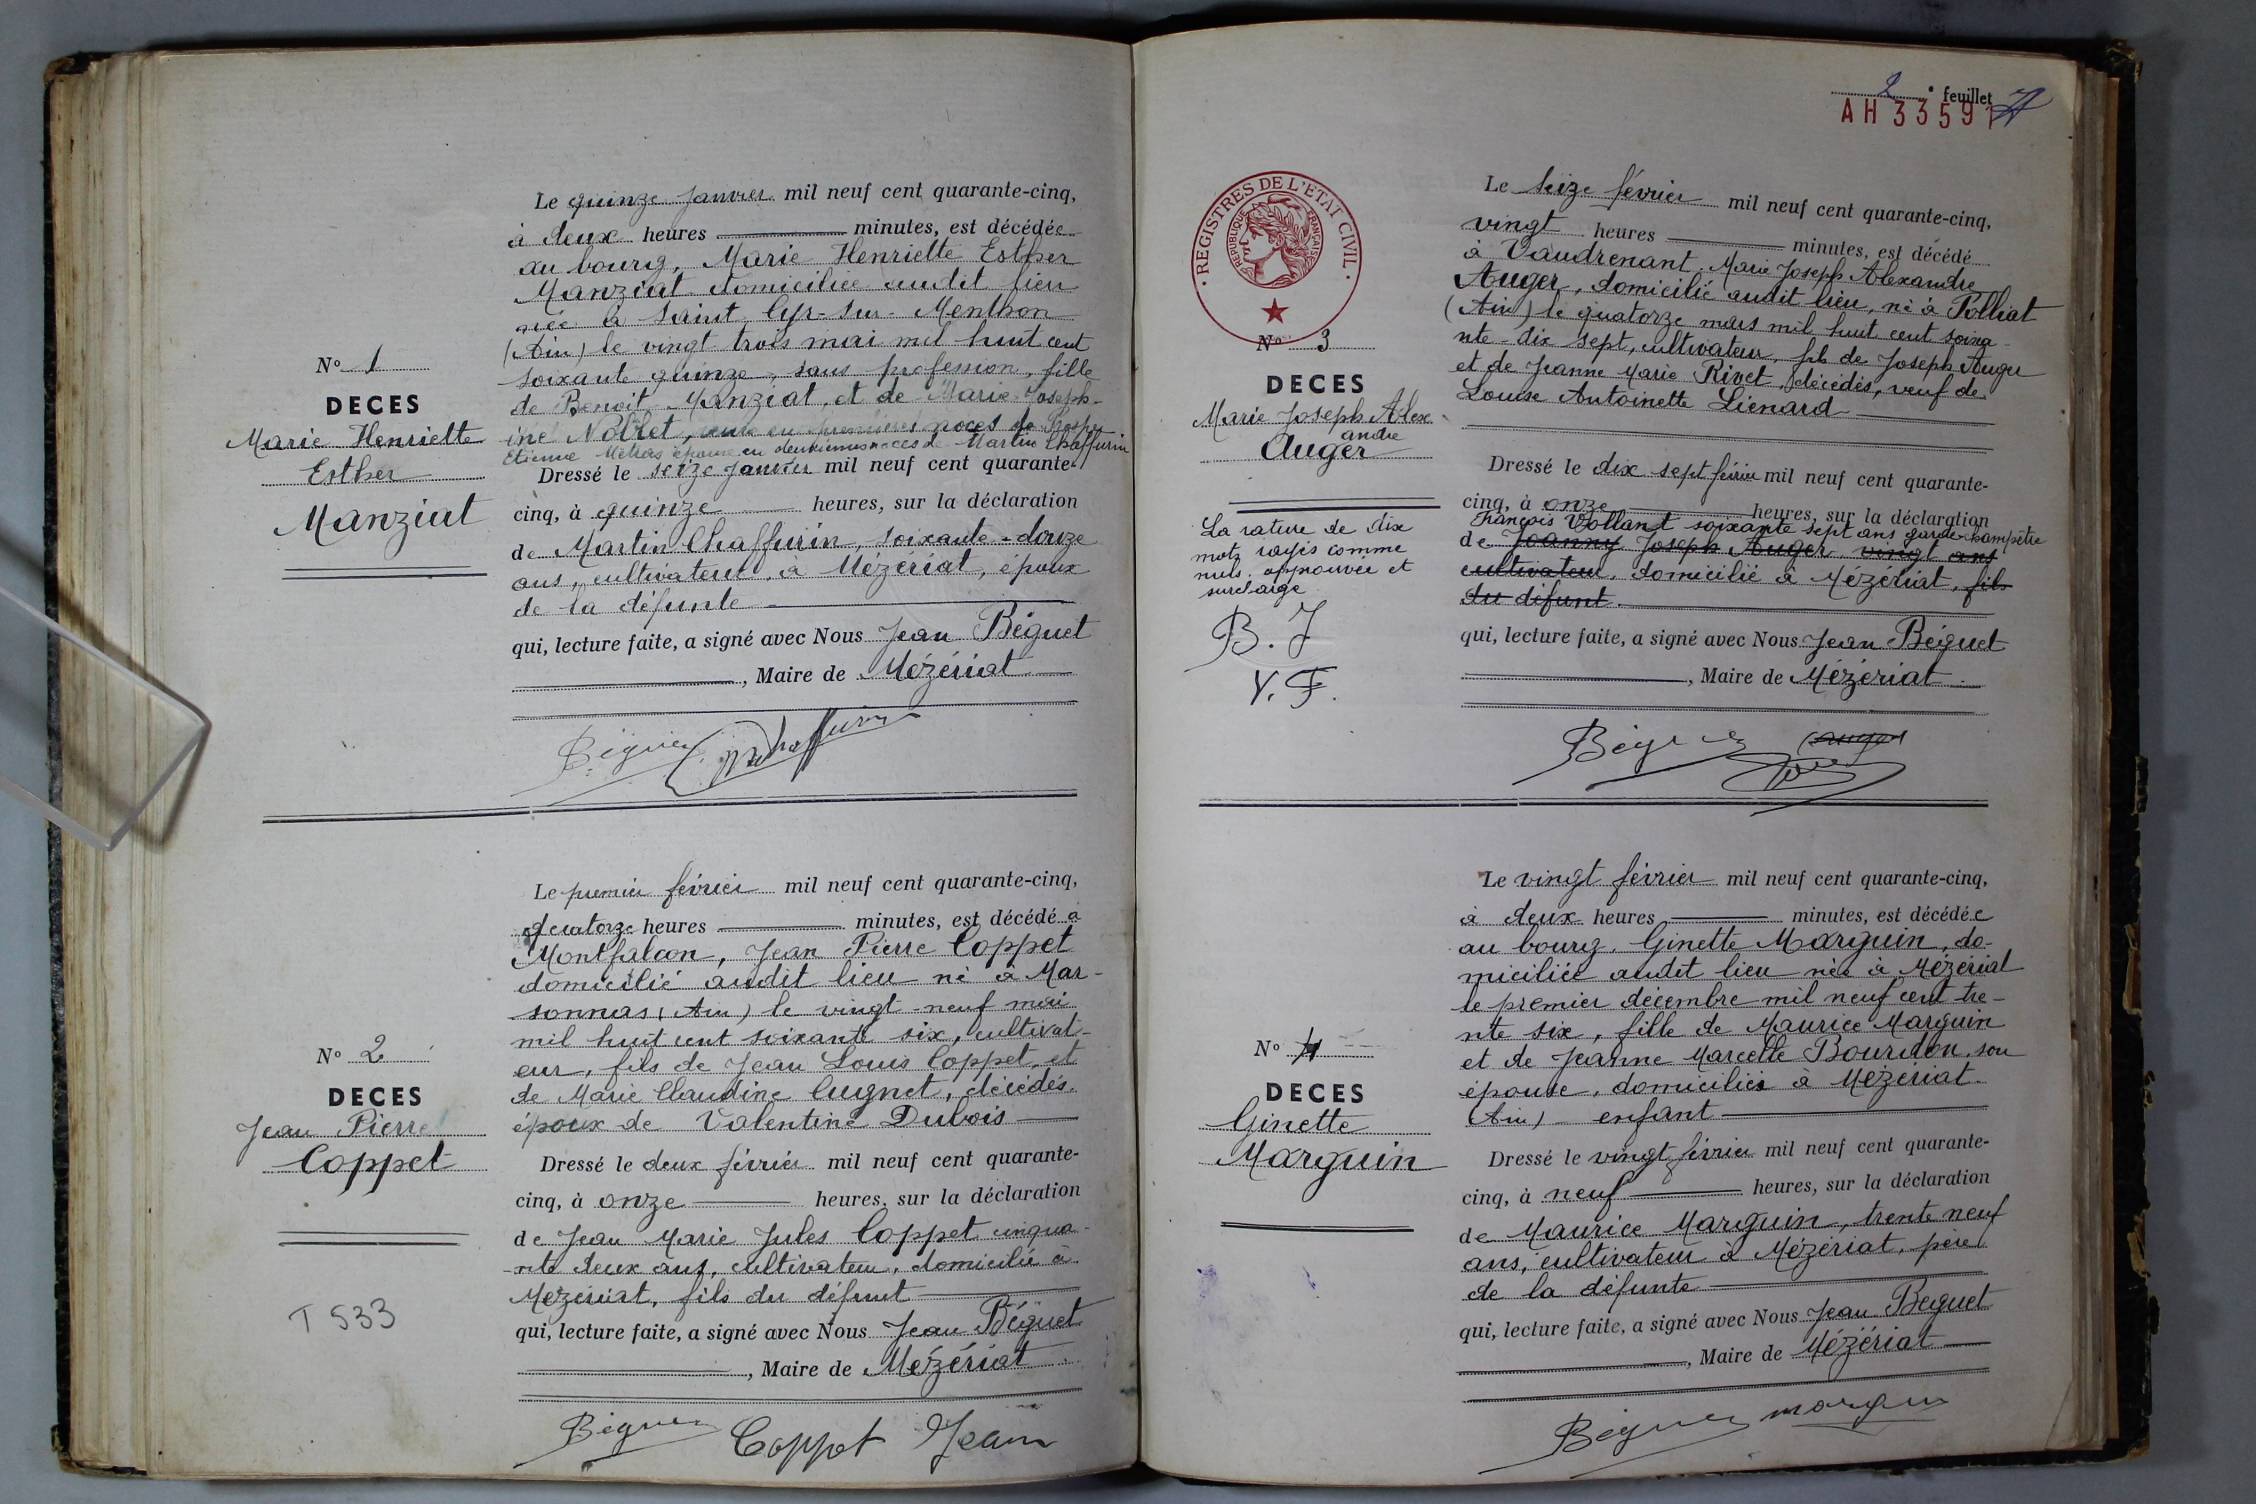 Le quinze Janvier mil neuf cent quarante-cinq,
à deux heures minutes, est décédée
au bourg, Marie Henriette Esther
Manziat domiciliée audit lieu
née à Saint Cyr-sur-Menthon
(Ain) le vingt trois mai mil huit cent
soixante quinze, sans profession, fille
de Benoit Manziat, et de Marie Joseph-
ine Noblet, veuve en premières noces de Prosper
Etienne Métras épouse en deuxièmes noces de Martin Chaffurin
N° 1
DECES
Marie Henriette
Esther
Manziat
Dressé le seize Janvier mil neuf cent quarante-
cinq, à quinze heures, sur la déclaration
de Martin Chaffurin, soixante-douze
ans, cultivateur, à Mézériat, époux
de la défunte
qui, lecture faite, a signé avec Nous Jean Béguet
, Maire de Mézériat
Béguet Chaffurin
Le premier février mil neuf cent quarante-cinq,
quatorze heures minutes, est décédé à
Montfalcon, Jean Pierre Coppet
domicilié audit lieu né à Mar-
sonnas (Ain) le vingt-neuf mai
mil huit cent soixante six, cultivat-
eur, fils de Jean Louis Coppet, et
de Marie Claudine Cugnet, décédés.
époux de Valentine Dubois
N° 2
DECES
Jean Pierre
Coppet
Dressé le deux février mil neuf cent quarante-
cinq, à onze heures, sur la déclaration
de Jean Marie Jules Coppet cinqua-
nte deux ans, cultivateur, domicilié à
Mézériat, fils du défunt
qui, lecture faite, a signé avec Nous Jean Béguet
, Maire de Mézériat
T 533
Béguet Coppet Jean
2e feuillet
AH 33591
REGISTRES DE L'ETAT CIVIL
REPUBLIQUE FRANÇAISE
Le seize février mil neuf cent quarante-cinq,
vingt heures minutes, est décédé
à Vaudrenant, Marie Joseph Alexandre
Auger, domicilié audit lieu, né à Polliat
(Ain) le quatorze mars mil huit cent soixa-
nte-dix sept, cultivateur, fils de Joseph Auger
et de Jeanne Marie Rivet, décédés, veuf de
Louise Antoinette Lienard
N° 3
DECES
Marie Joseph Alex-
andre
Auger
Dressé le dix sept février mil neuf cent quarante-
cinq, à onze heures, sur la déclaration
François Vollant soixante sept ans garde champêtre
de Joanny Joseph Auger vingt ans
cultivateur, domicilié à Mézériat, fils
du défunt.
qui, lecture faite, a signé avec Nous Jean Béguet
, Maire de Mézériat
La rature de dix
mots rayés comme
nuls approuvée et
surcharge
B. J
V. F.
Béguet Auger
Le vingt février mil neuf cent quarante-cinq,
à deux heures minutes, est décédée
au bourg. Ginette Marguin, do-
miciliée audit lieu née à Mézériat
le premier décembre mil neuf cent tre-
nte six, fille de Maurice Marguin
et de Jeanne Marcelle Bourdon, son
épouse, domiciliés à Mézériat.
(Ain) enfant
N° 4
DECES
Ginette
Marguin
Dressé le vingt février mil neuf cent quarante-
cinq, à neuf heures, sur la déclaration
de Maurice Marguin, trente neuf
ans, cultivateur à Mézériat, père
de la défunte
qui, lecture faite, a signé avec Nous Jean Béguet
, Maire de Mézériat
Béguet Marguin